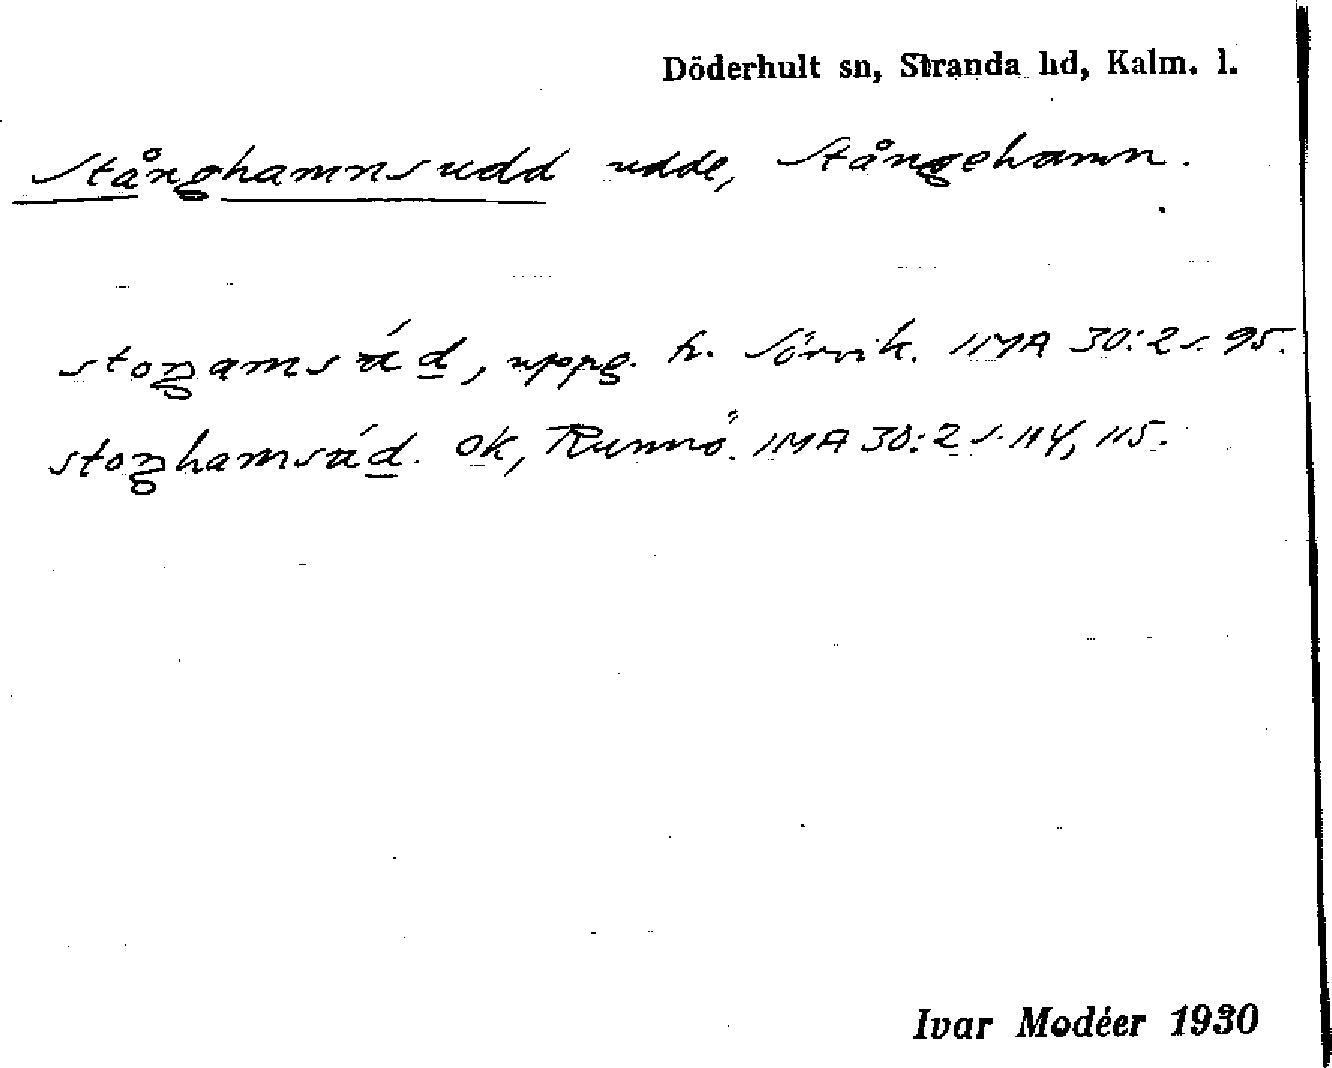 Döderhult sn, Stranda hd, Kalm. l.
Stånghamnsudd udde, Stångehamn.
stoŋamsúd, uppg. fr. Sörvik. IMA 30:2 s. 95.
stoŋhamsúd. ok, Runnö. IMA 30:2 s. 114, 115.
Ivar Modéer 1930